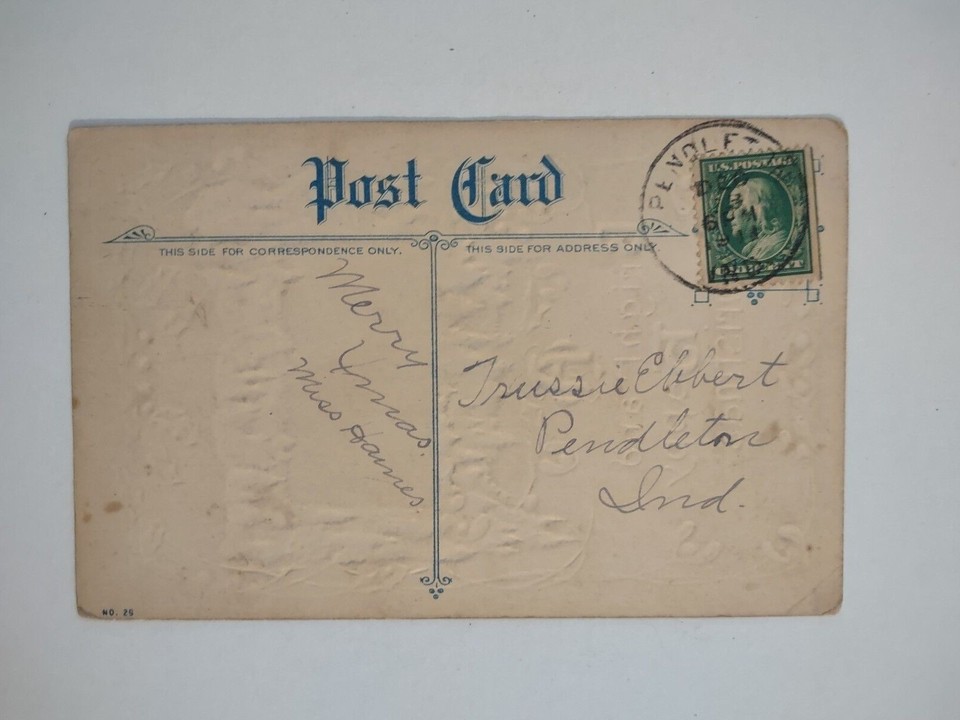 Post Card
THIS SIDE FOR CORRESPONDENCE ONLY.
THIS SIDE FOR ADDRESS ONLY.
U.S. POSTAGE
PENDLET
DEC
IND
Merry
Xmas.
Miss Haines.
Trussie Ebbert
Pendleton
Ind.
NO. 26